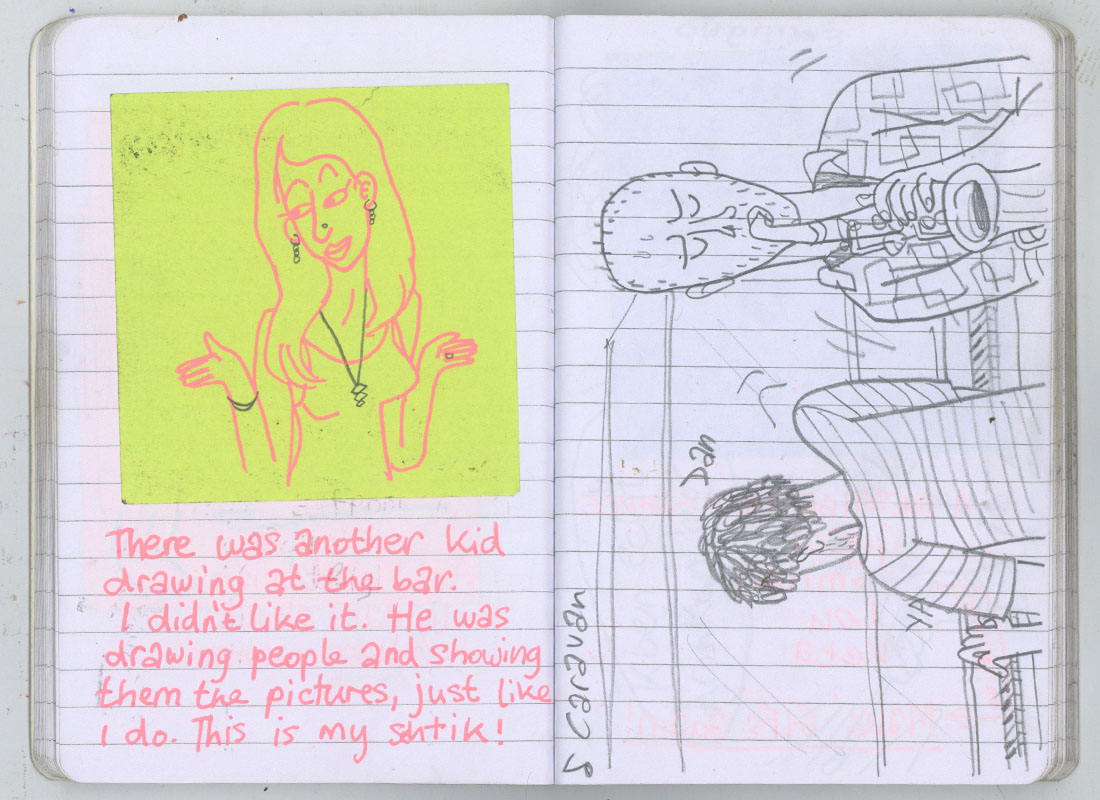 There was another kid
drawing at the bar.
I didn't like it. He was
drawing people and showing
them the pictures, just like
I do. This is my shtik!
Dan
Caravan